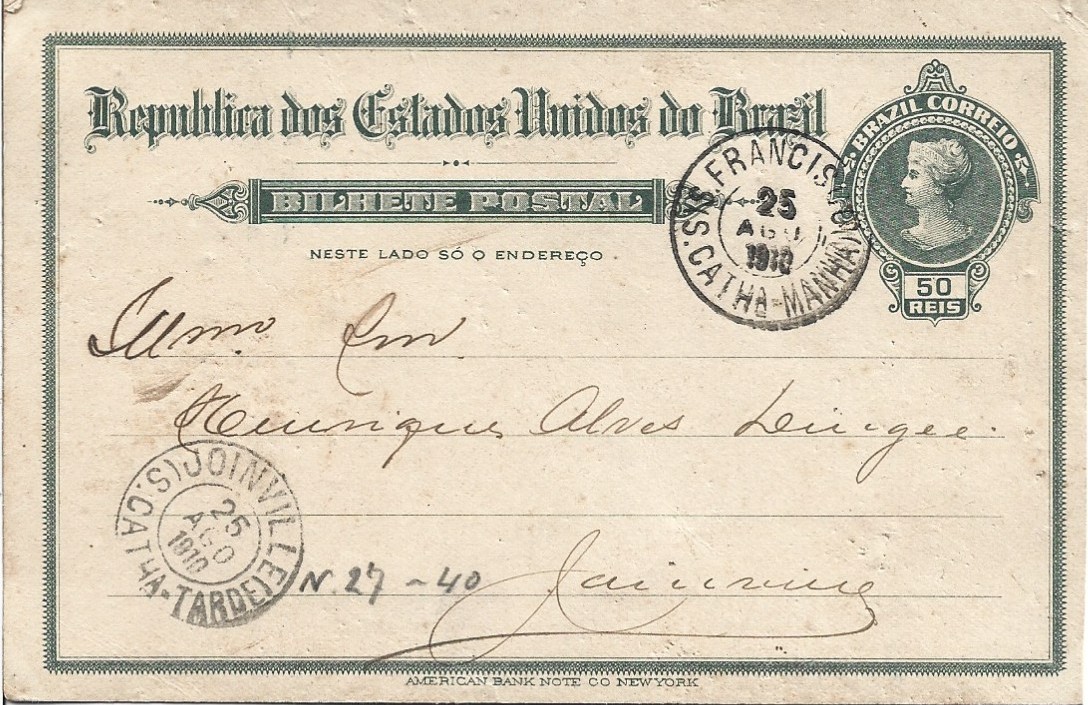 Republica dos Estados Unidos do Brazil
BRAZIL CORREIO
BILHETE POSTAL
NESTE LADO SÓ O ENDEREÇO.
50
REIS
S. FRANCISCO
25
AGO
1910
(S. CATHA-MANHÃ)
Illmo. Snr.
Henrique Alves
Joinville
JOINVILLE
25
AGO
1910
(S. CATHA-TARDE)
N. 27 - 40
AMERICAN BANK NOTE CO NEW YORK